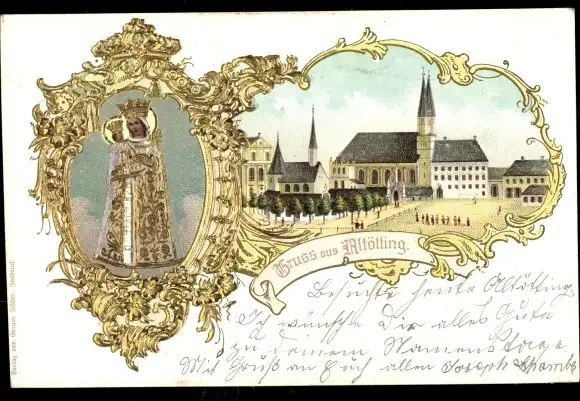 Gruss aus Altötting.
Besuchte heute Altötting
Ich wünsche Dir alles Gute
zu deinem Namenstage
Mit Gruß an Euch allen Joseph
Verlag von